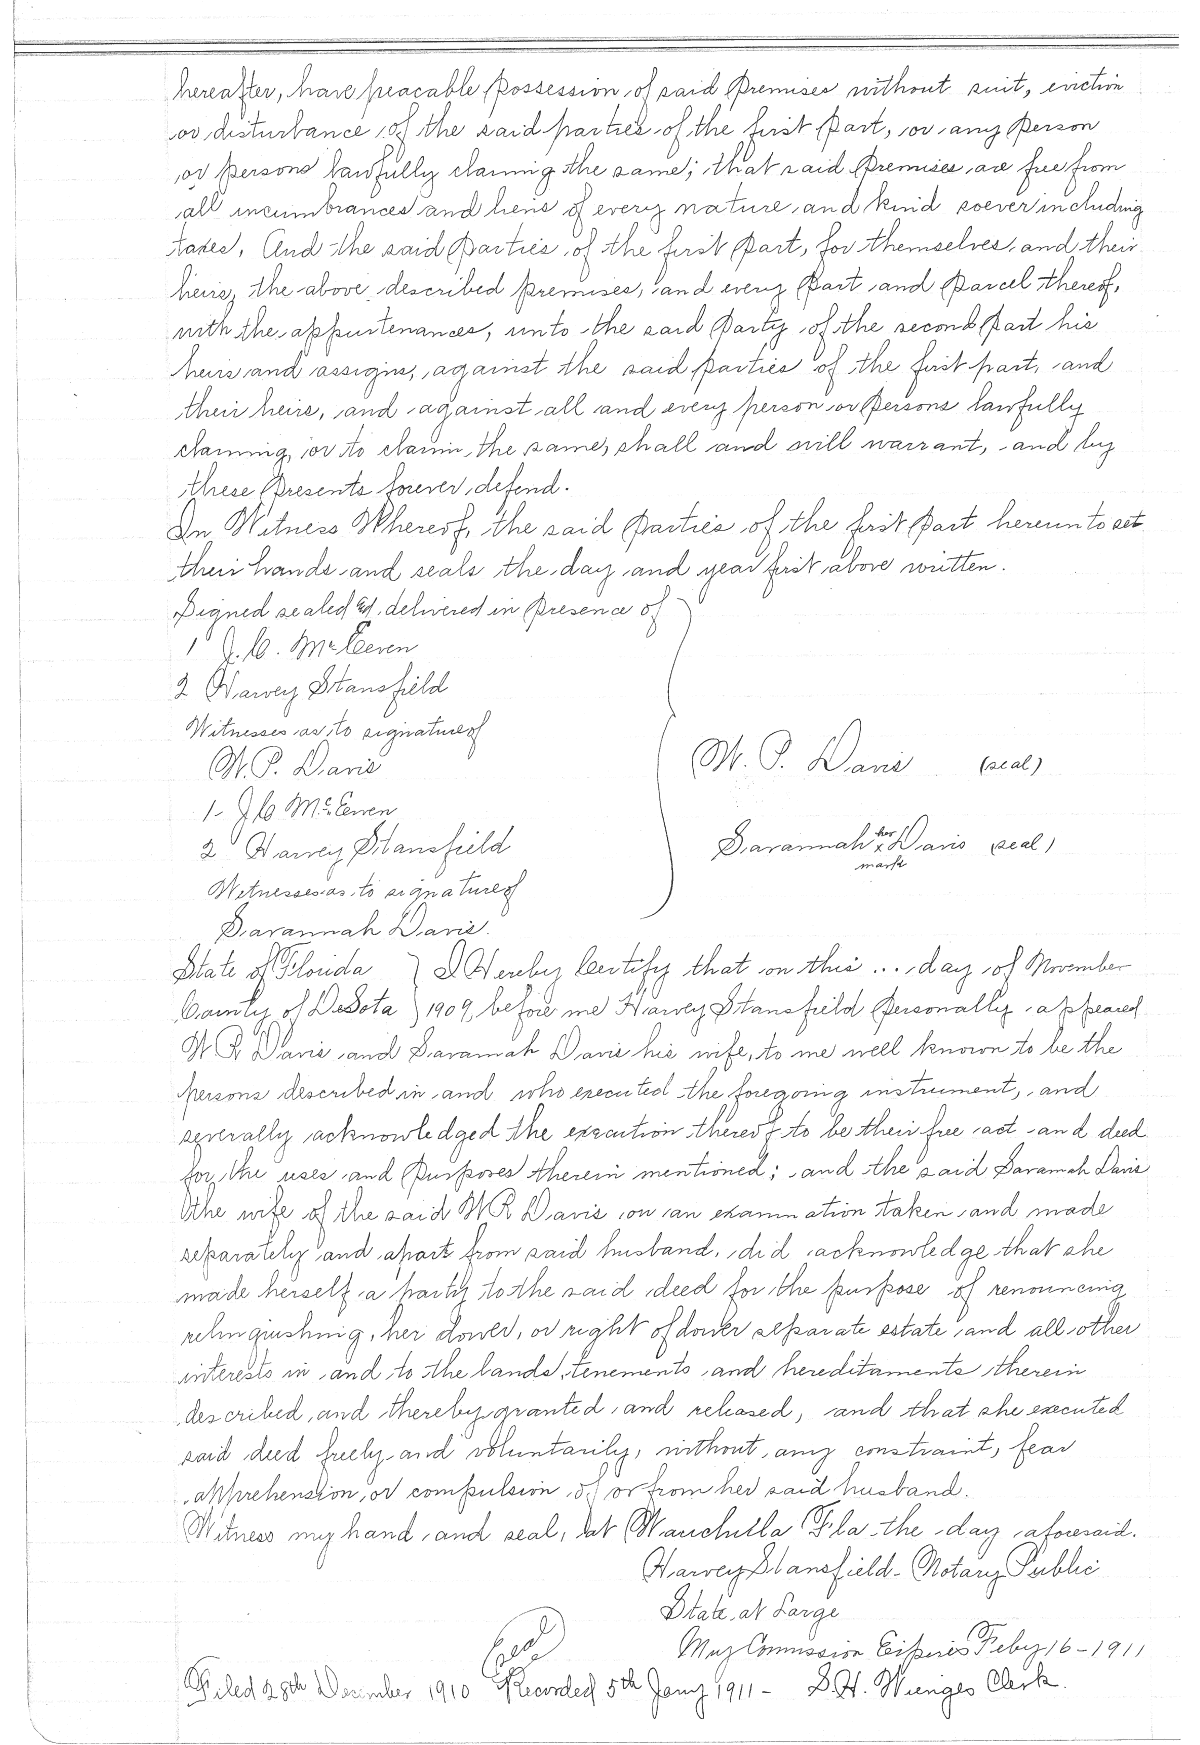 hereafter, have peacable possession of said Premises without suit, eviction
or disturbance of the said parties of the first Part, or any Person
or persons lawfully claming the same; that said Premises are free from
all incumbrances and liens of every nature and kind soever including
taxes. And the said Parties of the first Part, for themselves and their
heirs, the above described premises, and every Part and Parcel thereof,
with the appurtenances, unto the said Party of the second Part his
heirs and assigns, against the said parties of the first part, and
their heirs, and against all and every person or Persons lawfully
claming, or to claim the same, shall and will warrant, and by
these Presents forever defend.
In Witness Whereof, the said Parties of the first Part hereunto set
their hands and seals the day and year first above written.
Signed sealed & delivered in Presence of
1 J.C. McEwen
2 Harvey Stansfield
Witnesses as to signature of
W. P. Davis
W. P. Davis (seal)
1- J C McEwen
2 Harvey Stansfield
Savannah her x mark Davis (seal)
Witnesses as to signature of
Savannah Davis.
State of Florida } I Hereby Certify that on this ... day of November
County of DeSota } 1909, before me Harvey Stansfield Personally appeared
W R Davis and Savannah Davis his wife, to me well known to be the
persons described in and who executed the foregoing instrument, and
severally acknowledged the execution thereof to be their free act and deed
for the uses and Purposes therein mentioned; and the said Savannah Davis
the wife of the said W R Davis on an examination taken and made
separately and apart from said husband, did acknowledge that she
made herself a party to the said deed for the purpose of renouncing
relinquishing, her dower, or right of dower separate estate and all other
interests in and to the lands, tenements and hereditaments therein
described, and thereby granted and released, and that she executed
said deed freely and voluntarily, without any constraint, fear
apprehension, or compulsion of or from her said husband.
Witness my hand and seal, at Wauchula Fla the day aforesaid.
Harvey Stansfield - Notary Public
State at Large
Seal
My Commission Expires Feby 16-1911
Filed 28th December 1910 Recorded 5th Jany 1911 - S.H. Wienges Clerk.